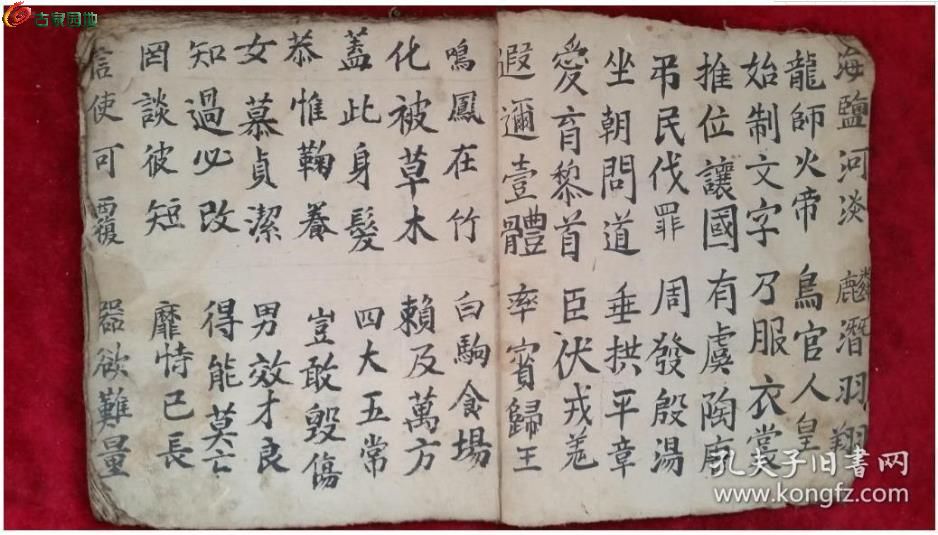 海鹽河淡 鱗潛羽翔
龍師火帝 鳥官人皇
始制文字 乃服衣裳
推位讓國 有虞陶唐
弔民伐罪 周發殷湯
坐朝問道 垂拱平章
愛育黎首 臣伏戎羌
遐邇壹體 率賓歸王
鳴鳳在竹 白駒食場
化被草木 賴及萬方
蓋此身髮 四大五常
恭惟鞠養 豈敢毀傷
女慕貞潔 男效才良
知過必改 得能莫亡
罔談彼短 靡恃己長
信使可覆 器欲難量
古泉园地
孔夫子旧书网
www.kongfz.com